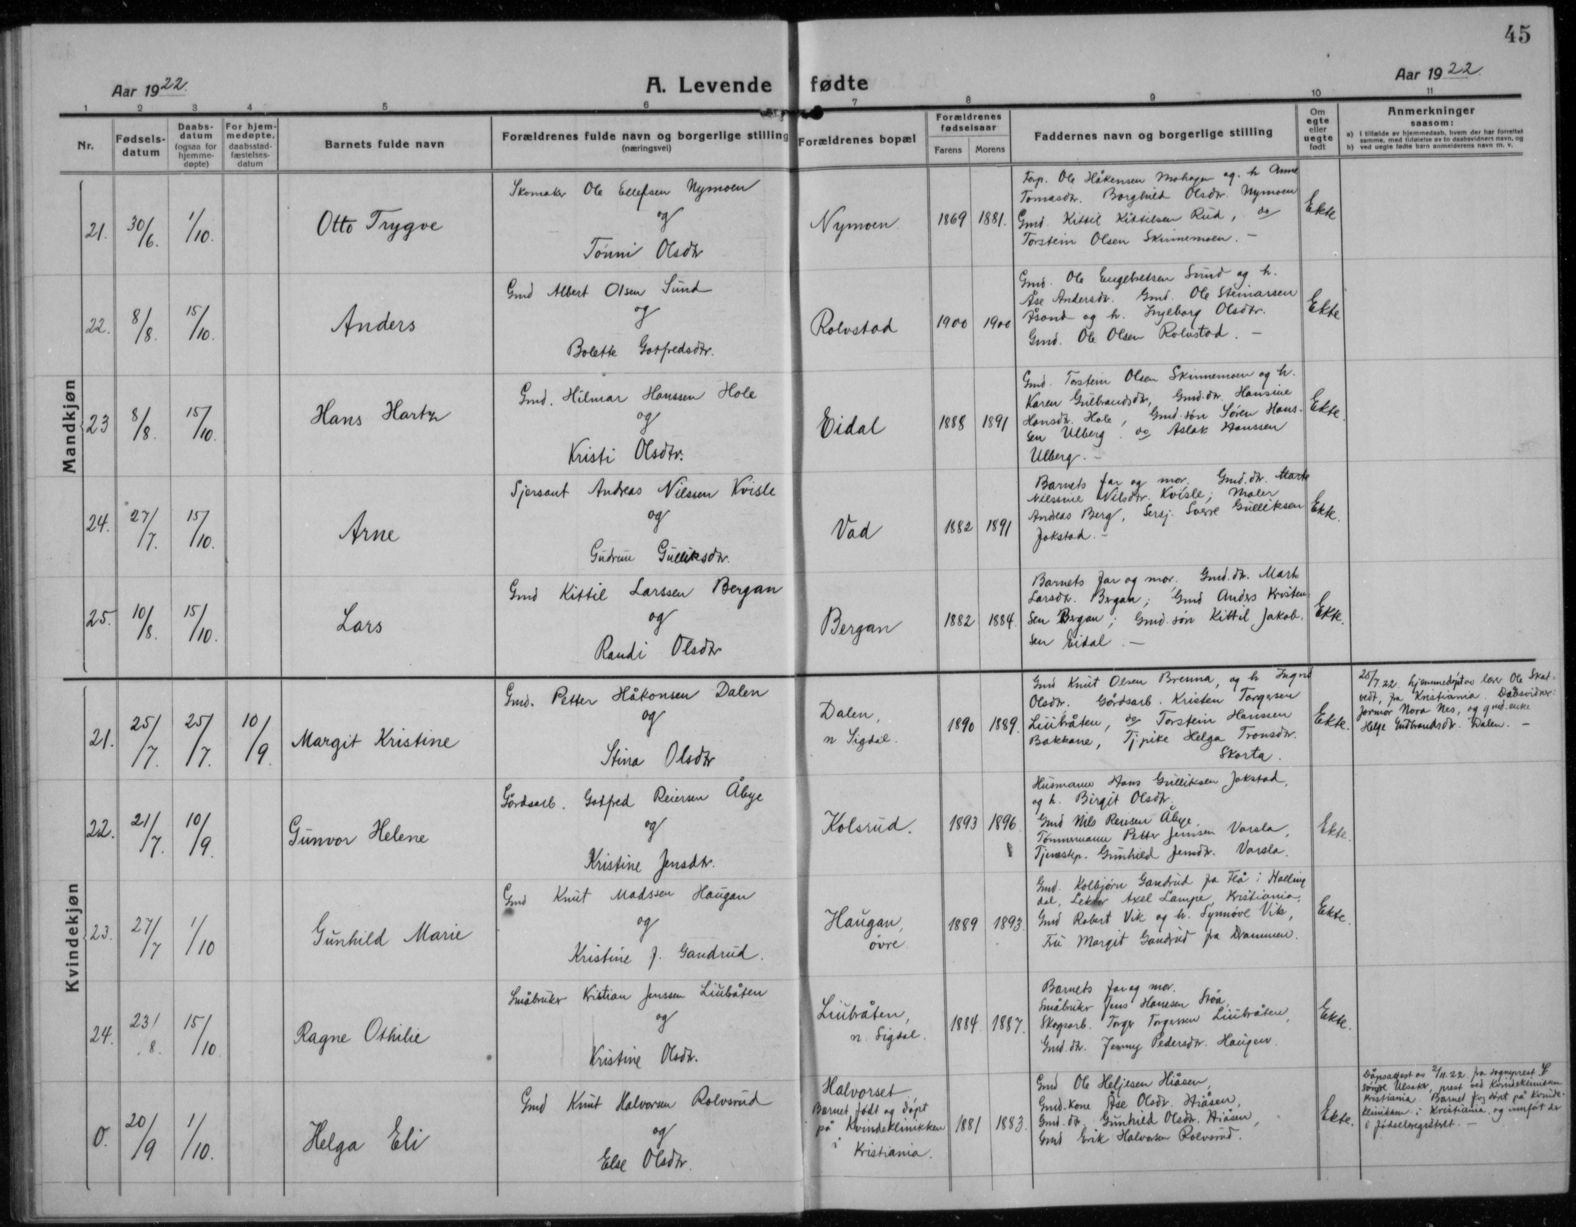 45
Aar 1922.
A. Levende fødte
Aar 1922.
1 2 3 4 5 6 7 8 9 10 11
Nr.
Fødsels-
datum
Daabs-
datum
(ogsaa for
hjemme-
døpte)
For hjem-
medøpte,
daabsstad-
fæstelses-
datum
Barnets fulde navn
Forældrenes fulde navn og borgerlige stilling
(næringsvei)
Forældrenes bopæl
Forældrenes
fødselsaar
Farens Morens
Faddernes navn og borgerlige stilling
Om
egte
eller
uegte
født
Anmerkninger
saasom:
a) I tilfælde av hjemmedaab, hvem der har forrettet
samme, med tilføielse av to daabsvidners navn, og
b) ved uegte fødte barn anmelderens navn m. v.
Mandkjøn
21. 30/6. 1/10. Otto Trygve
Skomaker Ole Ellefsen Nymoen
og
Tønni Olsdtr
Nymoen. 1869 1881.
Forp. Ole Håkensen Mohagen og h. Anne
Tomasdtr. Borghild Olsdtr. Nymoen
Gmd. Kittil Kittilsen Rud, do
Torstein Olsen Skinnemoen. –
Ekte
22. 8/8. 15/10. Anders
Gmd Albert Olsen Sund
og
Bolette Gotfredsdtr.
Rolvstad 1900 1900
Gmd. Ole Engebretsen Sund og h.
Åse Andersdtr. Gmd. Ole Steinarsen
Åsand og h. Ingeborg Olsdtr.
Gmd. Ole Olsen Rolvstad. –
Ekte
23 8/8. 15/10. Hans Hartz
Gmd. Hilmar Hanssen Hole
og
Kristi Olsdtr.
Eidal 1888 1891
Gmd. Torstein Olsen Skinnemoen og h.
Karen Gulbrandsdtr, Gmd.dtr. Hansine
Hansdtr. Hole, Gmd.søn Søren Hans-
sen Ulberg. do Aslak Hanssen
Ulberg. –
Ekte.
24. 27/7. 15/10. Arne
Sjersant Andreas Nilssen Kvisle
og
Gudrun Gulliksdtr.
Vad 1882 1891
Barnets far og mor. Gmd.dtr. Marte
Nilsine Nilsdtr. Kvisle; Maler
Andreas Berg, Sersj. Sverre Gulliksen
Jokstad. –
Ekte.
25. 10/8. 15/10. Lars
Gmd Kittil Larssen Bergan
og
Randi Olsdtr
Bergan 1882 1884.
Barnets far og mor. Gmd.dtr. Marte
Larsdtr. Bergan; Gmd Anders Kristen-
sen Bergan; Gmd.søn Kittil Jakob-
sen Eidal. –
Ekte.
Kvindekjøn
21. 25/7. 25/7. 10/9. Margit Kristine
Gmd. Petter Håkonsen Dalen
og
Stina Olsdtr
Dalen,
n Sigdal. 1890 1889.
Gmd Knut Olsen Brenna, og h Ingrid
Olsdtr. Gårdsarb. Kristen Torgersen
Liubråten, do Torstein Hanssen
Bakkane, Tj.pike Helga Tronsdtr.
Skorta.
Ekte.
25/7.22. hjemmedøpt av Ole Skat-
vedt, fra Kristiania. Dåbsvidner:
Jormor Nora Nes, og gmd.enke
Helge Gulbrandsdtr. Dalen. –
22. 21/7. 10/9. Gunvor Helene
Gårdsarb. Gotfred Reiersen Åbye
og
Kristine Jensdtr.
Kolsrud. 1893 1896
Husmann Hans Gulliksen Jokstad,
og h. Birgit Olsdtr,
Gmd Nils Reiersen Åbye,
Tømmermann Petter Jenssen Varsla,
Tjeneskp. Gunhild Jensdtr. Varsla.
Ekte.
23. 27/7 1/10 Gunhild Marie
Gmd Knut Madssen Haugan
og
Kristine J. Gandrud.
Haugan,
øvre. 1889 1893.
Gmd. Kolbjørn Gandrud fra Flå i Halling-
dal, Lektor Axel Lampe, Kristiania,
Gmd Robert Vik og h. Synnøve Vik,
Fru Margit Gandrud fra Drammen.
Ekte.
24. 23/8. 15/10 Ragne Othilie
Småbruker Kristian Jenssen Liubråten
og
Kristine Olsdtr.
Liubråten,
n. Sigdal. 1884 1887.
Barnets far og mor.
Småbruker Jens Hanssen Stöa,
Skogsarb. Torger Torgersen Liubråten,
Gmd.dtr. Jenny Pedersdtr. Haugen.
Ekte.
0. 20/9 1/10. Helga Eli
Gmd Knut Halvorsen Rolvsrud
og
Else Olsdtr.
Halvorset
Barnet født og døpt
på Kvindeklinikken
i
Kristiania. 1881 1883.
Gmd Ole Heljesen Hiåsen,
Gmd.kone Åse Olsdtr. Hiåsen,
Gmd.dtr Gunhild Olsdtr. Hiåsen,
Gmd Erik Halvorsen Rolvsrud.
Ekte.
Dåpsattest av 2/11.22 fra sogneprest
Ulsaker, prest ved Kvindeklinikken
Kristiania. Barnet er født på Kvinde-
klinikken i Kristiania og innført der
i fødselsregistret. –